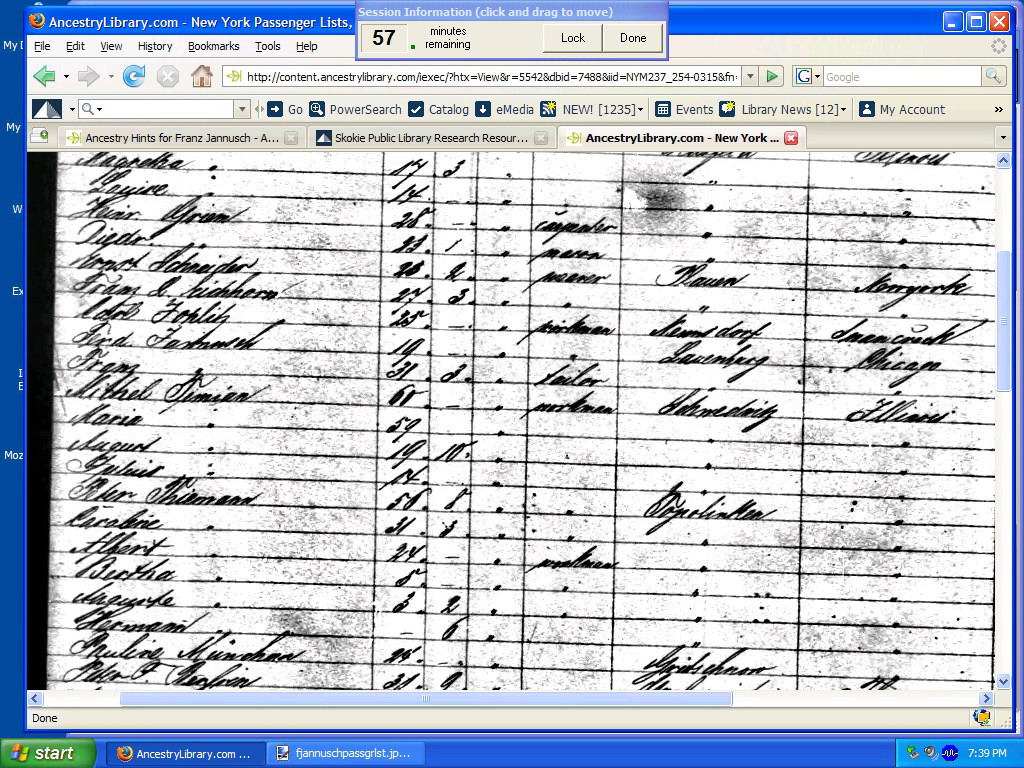 AncestryLibrary.com - New York Passenger Lists,
Session Information (click and drag to move)
57 minutes remaining Lock Done
File Edit View History Bookmarks Tools Help
http://content.ancestrylibrary.com/iexec/?htx=View&r=5542&dbid=7488&iid=NYM237_254-0315&fn=
Google
Go PowerSearch Catalog eMedia NEW! [1235] Events Library News [12] My Account »
Ancestry Hints for Franz Jannusch - A... Skokie Public Library Research Resour... AncestryLibrary.com - New York ...
17 3
Louise 14
Heinr 28 carpenter
Diedr. 23 1 mason
Schneider 28 2 Plauen Newyork
Franz Eichhorn 27 3
25 workman
Ferd. Jannusch 19 Lauenburg Chicago
Franz 31 3 tailor
Timian 60 workman Schwednitz Illinois
Maria 59
August 19 10
Julius 14
Peter Thiemann 56 8
Caroline 31 3
Albert 24 workman
Bertha 5
Auguste 3 2
Hermann 6
Pauline München 24
Peter F. 31 9
My
My
W
Ex
Moz
Done
start AncestryLibrary.com ... fjannuschpassgrlst.jp... 7:39 PM